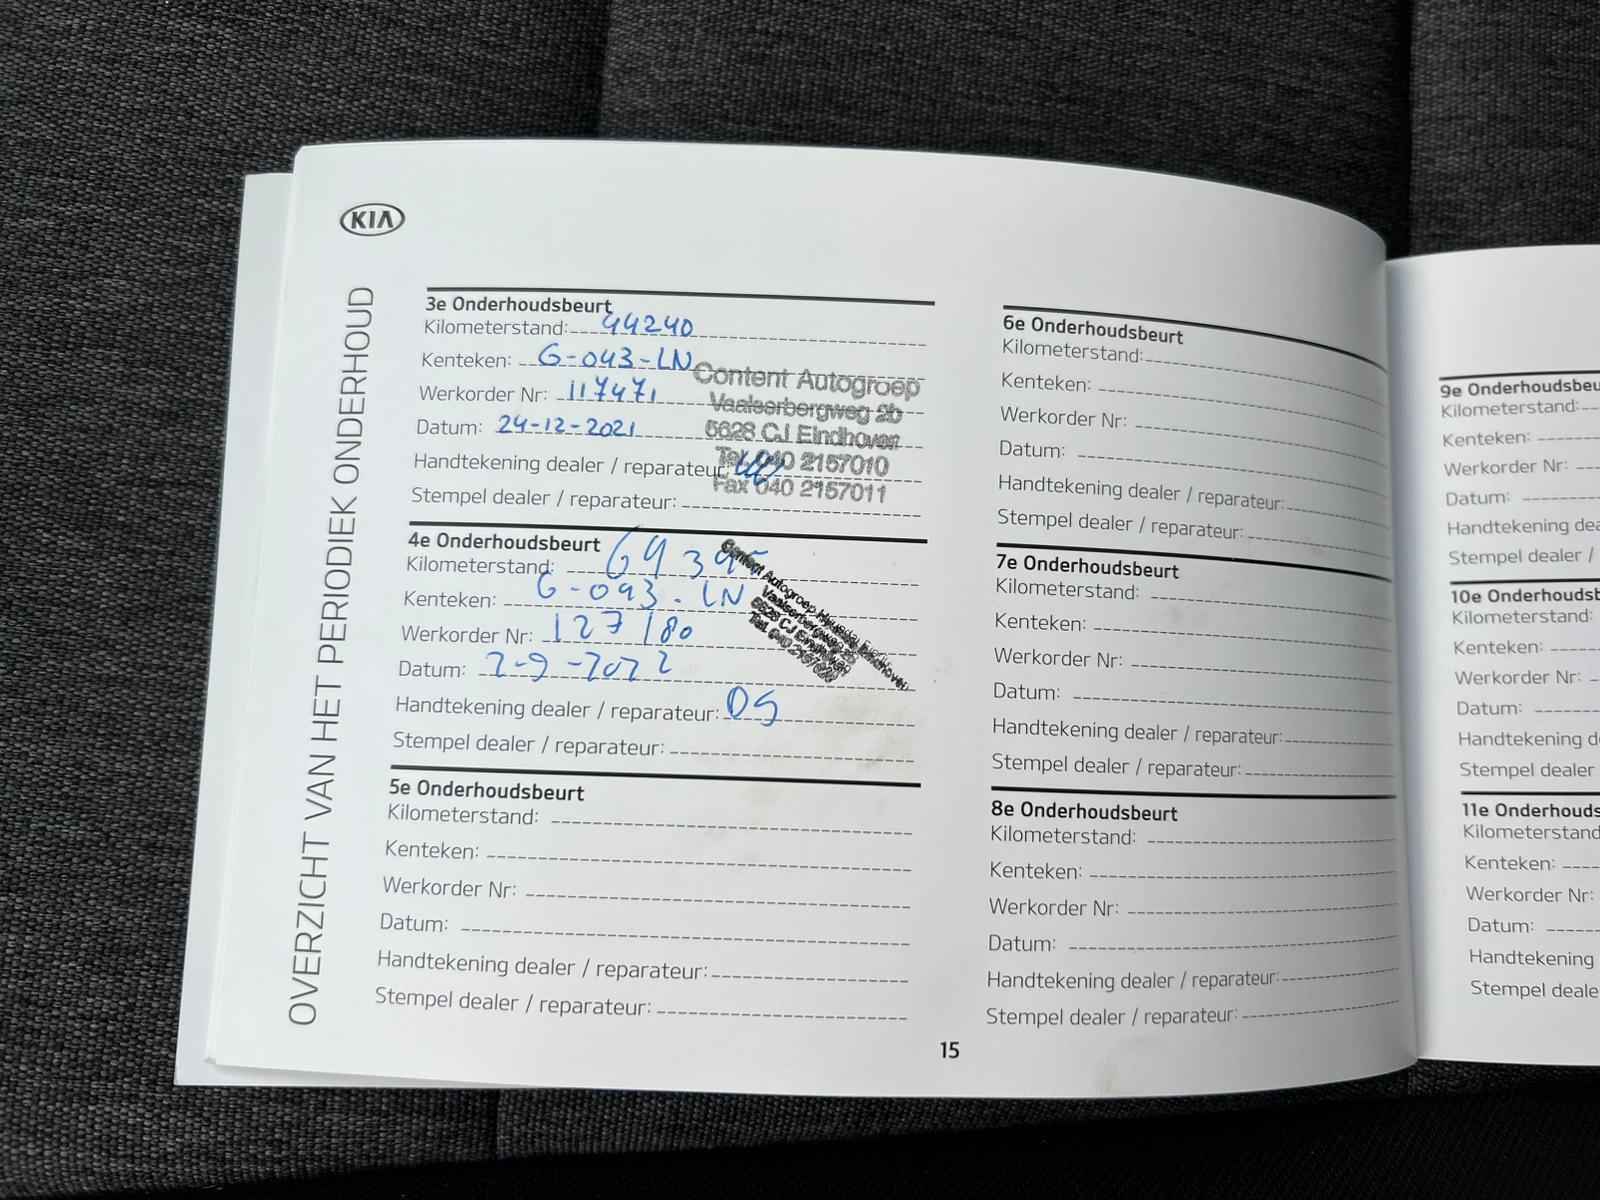 KIA
OVERZICHT VAN HET PERIODIEK ONDERHOUD
3e Onderhoudsbeurt
Kilometerstand: 44240
Kenteken: G-043-LN
Werkorder Nr: 117471
Datum: 24-12-2021
Handtekening dealer / reparateur:
Stempel dealer / reparateur:
Content Autogroep
Vaalserbergweg 2b
5628 CJ Eindhoven
Tel. 040 2157010
Fax 040 2157011
4e Onderhoudsbeurt
Kilometerstand:
Kenteken: G-093-LN
Werkorder Nr: 127180
Datum: 2-9-2022
Handtekening dealer / reparateur: DS
Stempel dealer / reparateur:
Content Autogroep
Vaalserbergweg 2b
5628 CJ Eindhoven
5e Onderhoudsbeurt
Kilometerstand:
Kenteken:
Werkorder Nr:
Datum:
Handtekening dealer / reparateur:
Stempel dealer / reparateur:
6e Onderhoudsbeurt
Kilometerstand:
Kenteken:
Werkorder Nr:
Datum:
Handtekening dealer / reparateur:
Stempel dealer / reparateur:
7e Onderhoudsbeurt
Kilometerstand:
Kenteken:
Werkorder Nr:
Datum:
Handtekening dealer / reparateur:
Stempel dealer / reparateur:
8e Onderhoudsbeurt
Kilometerstand:
Kenteken:
Werkorder Nr:
Datum:
Handtekening dealer / reparateur:
Stempel dealer / reparateur:
15
9e Onderhoudsbeu
Kilometerstand:
Kenteken:
Werkorder Nr:
Datum:
Handtekening dea
Stempel dealer /
10e Onderhoudsb
Kilometerstand:
Kenteken:
Werkorder Nr:
Datum:
Handtekening d
Stempel dealer
11e Onderhouds
Kilometerstand
Kenteken:
Werkorder Nr:
Datum:
Handtekening
Stempel deale